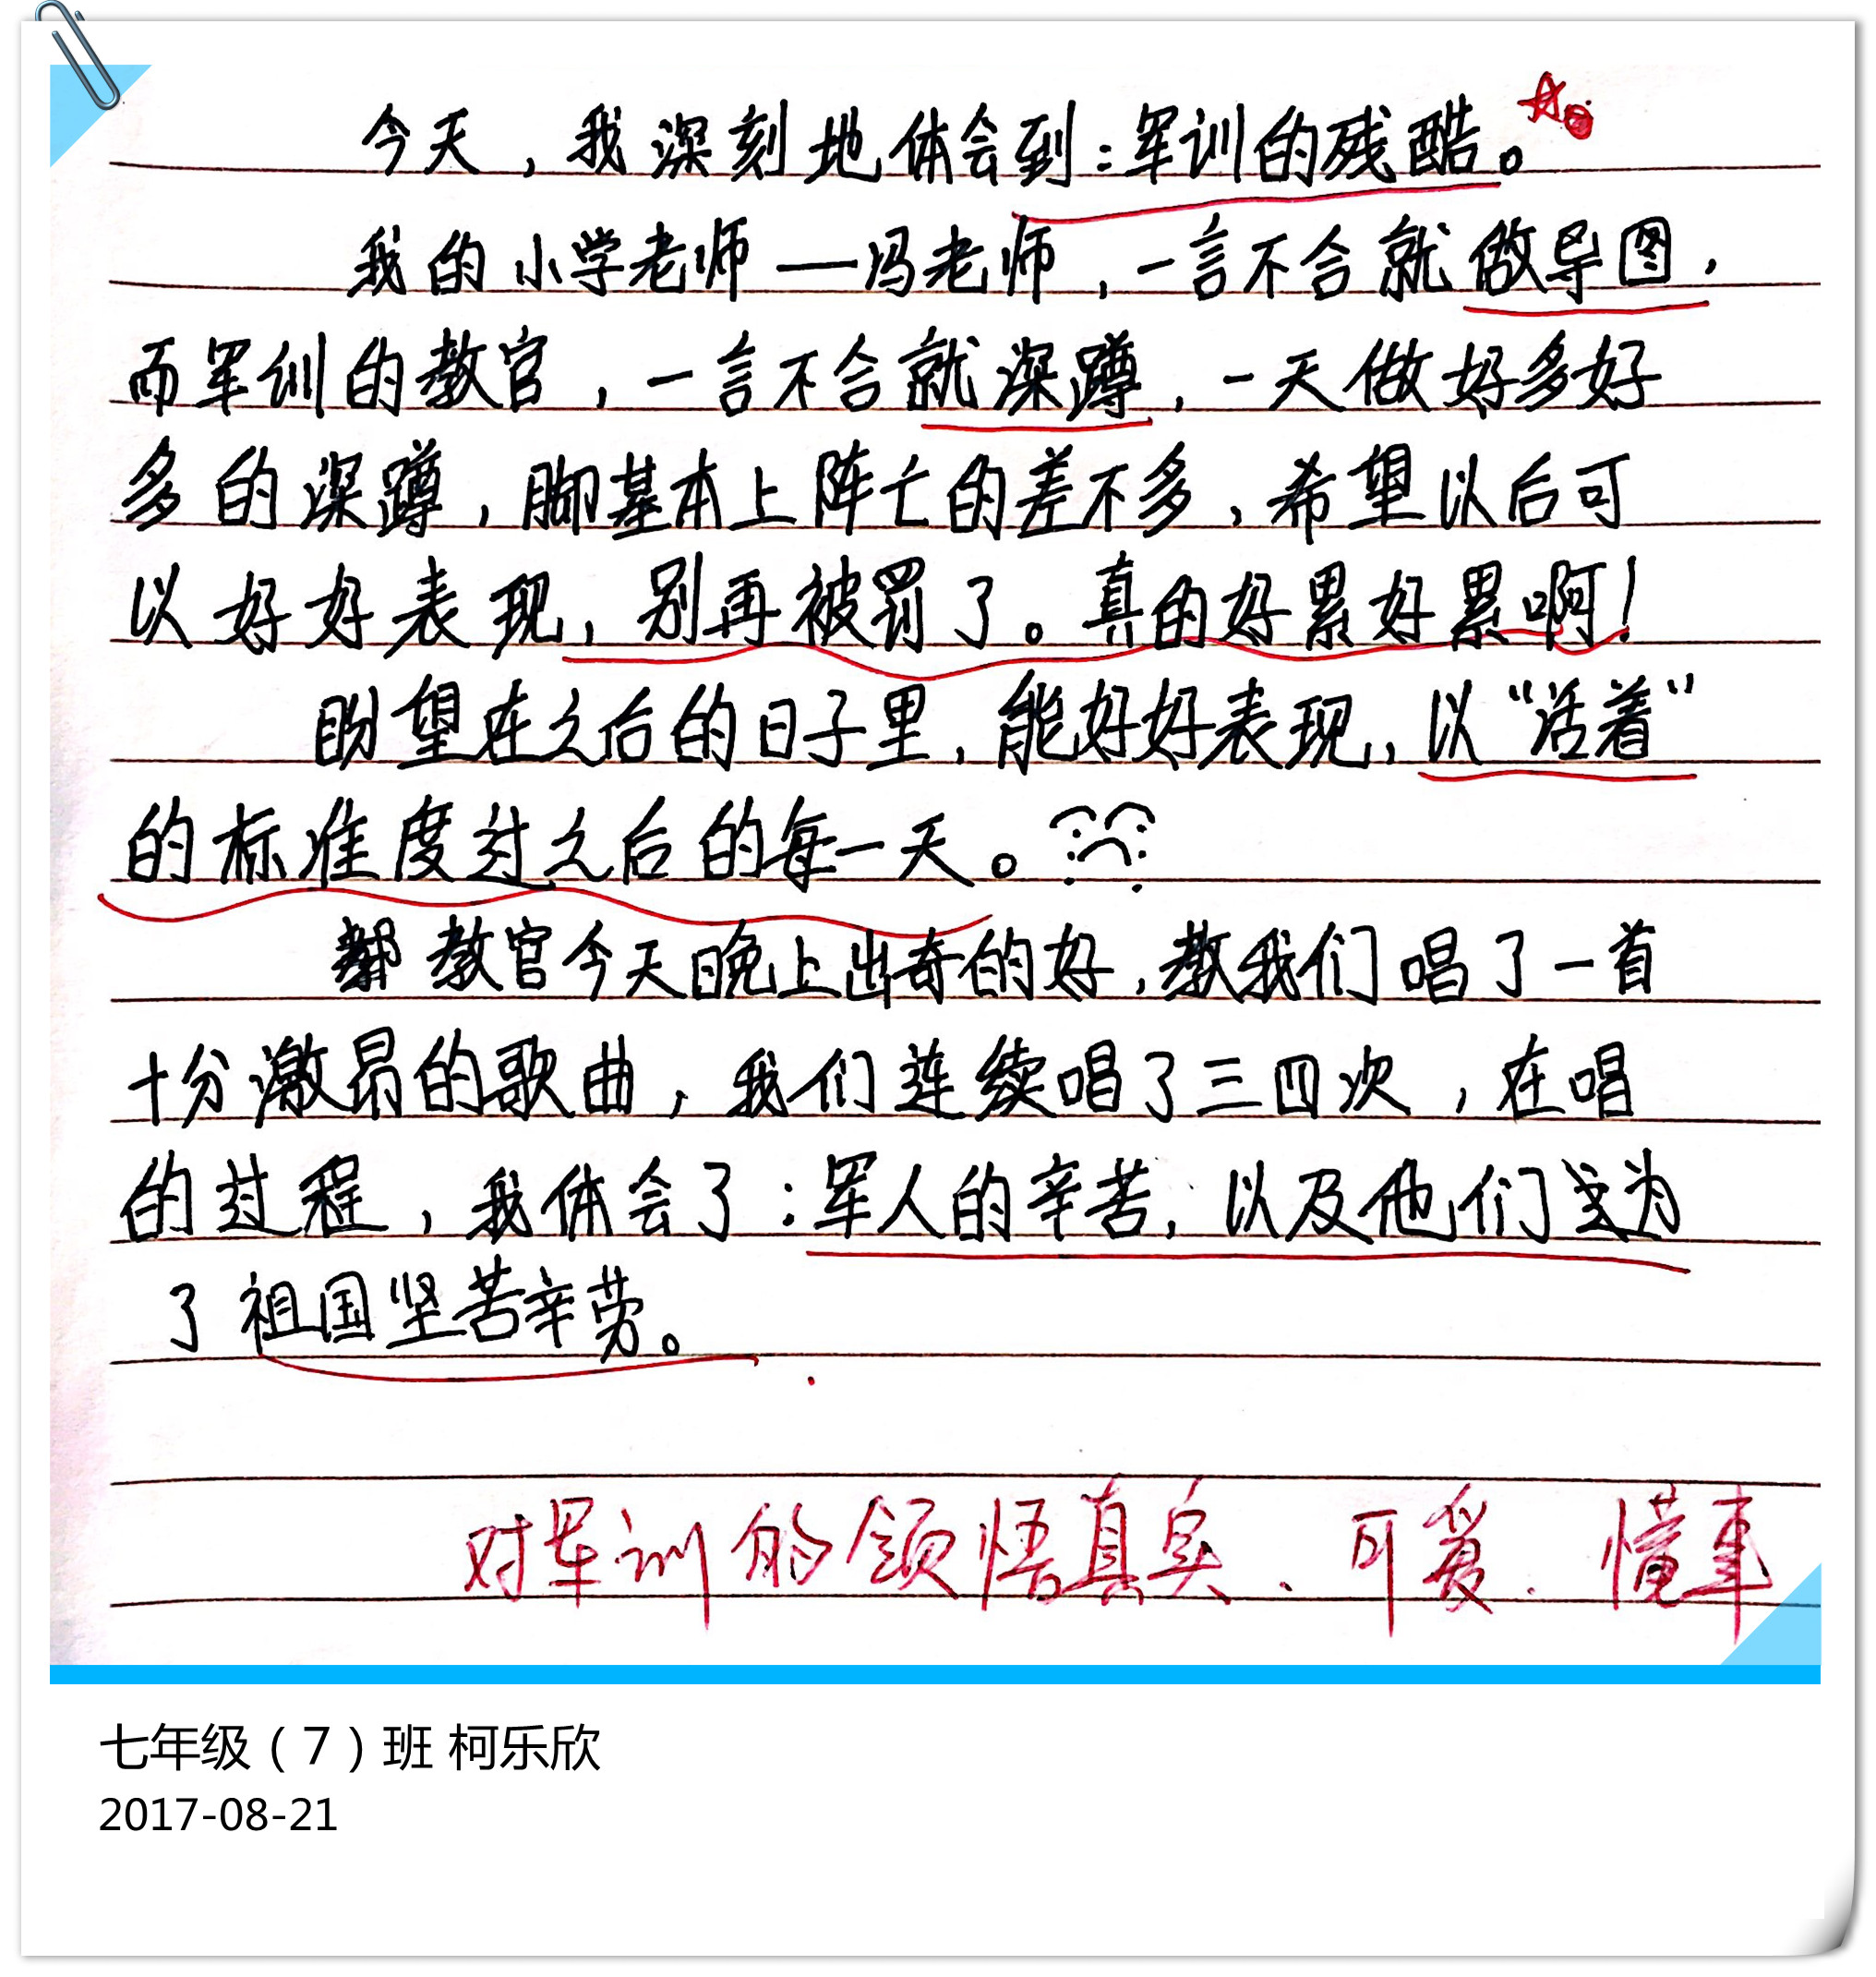 今天，我深刻地体会到：军训的残酷。
我的小学老师——冯老师，一言不合就做导图，
而军训的教官，一言不合就深蹲，一天做好多好
多的深蹲，脚基本上阵亡的差不多，希望以后可
以好好表现，别再被罚了。真的好累好累啊！
盼望在之后的日子里，能好好表现，以“活着”
的标准度过之后的每一天。
教官今天晚上出奇的好，教我们唱了一首
十分激昂的歌曲，我们连续唱了三四次，在唱
的过程，我体会了：军人的辛苦，以及他们为
了祖国坚苦辛劳。
对军训的领悟真实、可爱、懂事
七年级（7）班 柯乐欣
2017-08-21